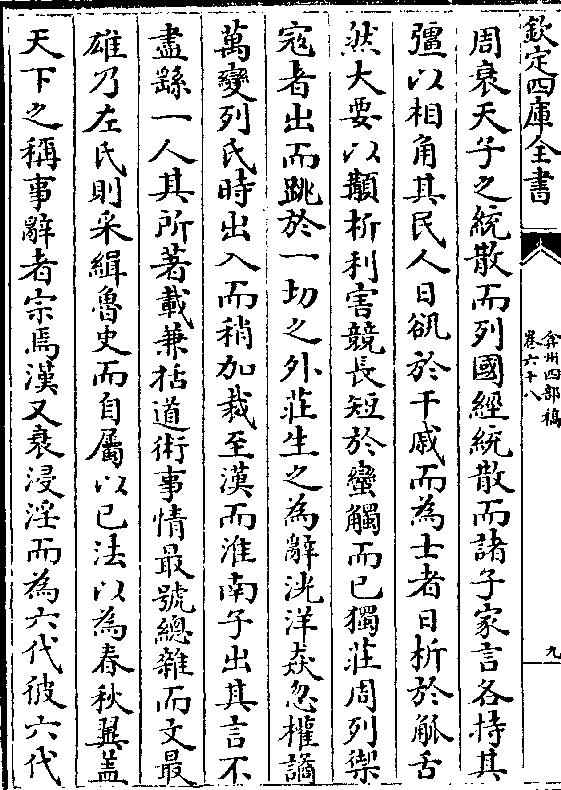 欽定四庫全書
弇州四部稿
卷六十八
九
周衰天子之統散而列國經統散而諸子家言各持其
彊以相角其民人日訊於干戚而為士者日折於觚舌
然大要以顓析利害競長短於蠻觸而已獨莊周列禦
寇者出而跳於一切之外莊生之為辭洸洋焱忽權譎
萬變列氏時出入而稍加裁至漢而淮南子出其言不
盡繇一人其所著載兼括道術事情最號總雜而文最
雄乃左氏則采緝魯史而自屬以已法以為春秋翼蓋
天下之稱事辭者宗焉漢又衰浸淫而為六代彼六代